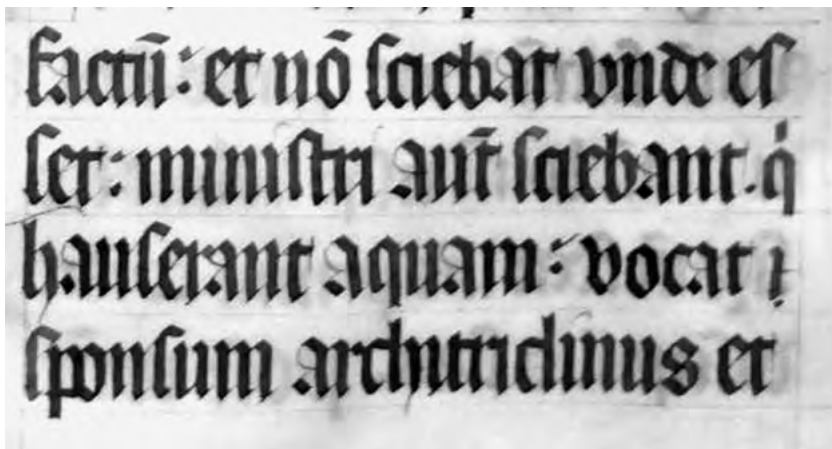 factū: et nō sciebat vnde es
set: ministri aut̄ sciebant. qͥ
hauserant aquam: vocat
sponsum architriclinus et